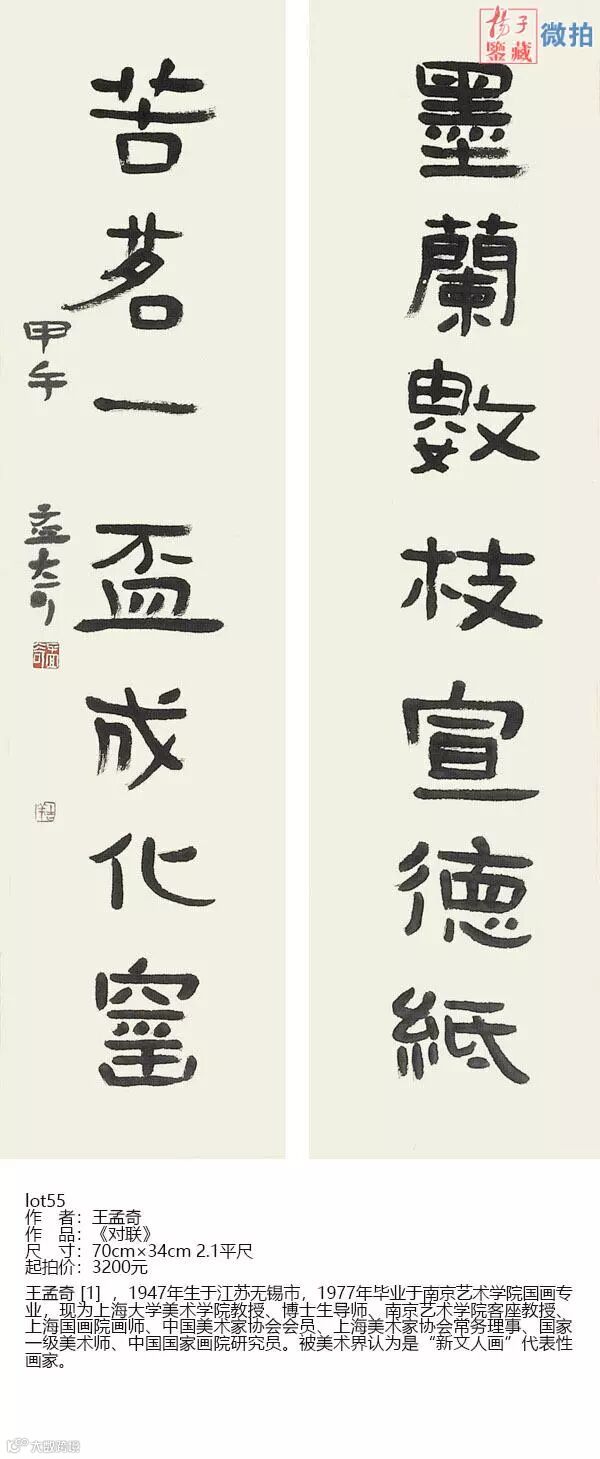 揚子
鑒藏
微拍
墨蘭數枝宣德紙
苦茗一盃成化窰
甲午
孟奇
lot55
作 者：王孟奇
作 品：《对联》
尺 寸：70cm×34cm 2.1平尺
起拍价：3200元
王孟奇 [1] ，1947年生于江苏无锡市，1977年毕业于南京艺术学院国画专
业，现为上海大学美术学院教授、博士生导师、南京艺术学院客座教授、
上海国画院画师、中国美术家协会会员、上海美术家协会常务理事、国家
一级美术师、中国国家画院研究员。被美术界认为是“新文人画”代表性
画家。
大数跨境